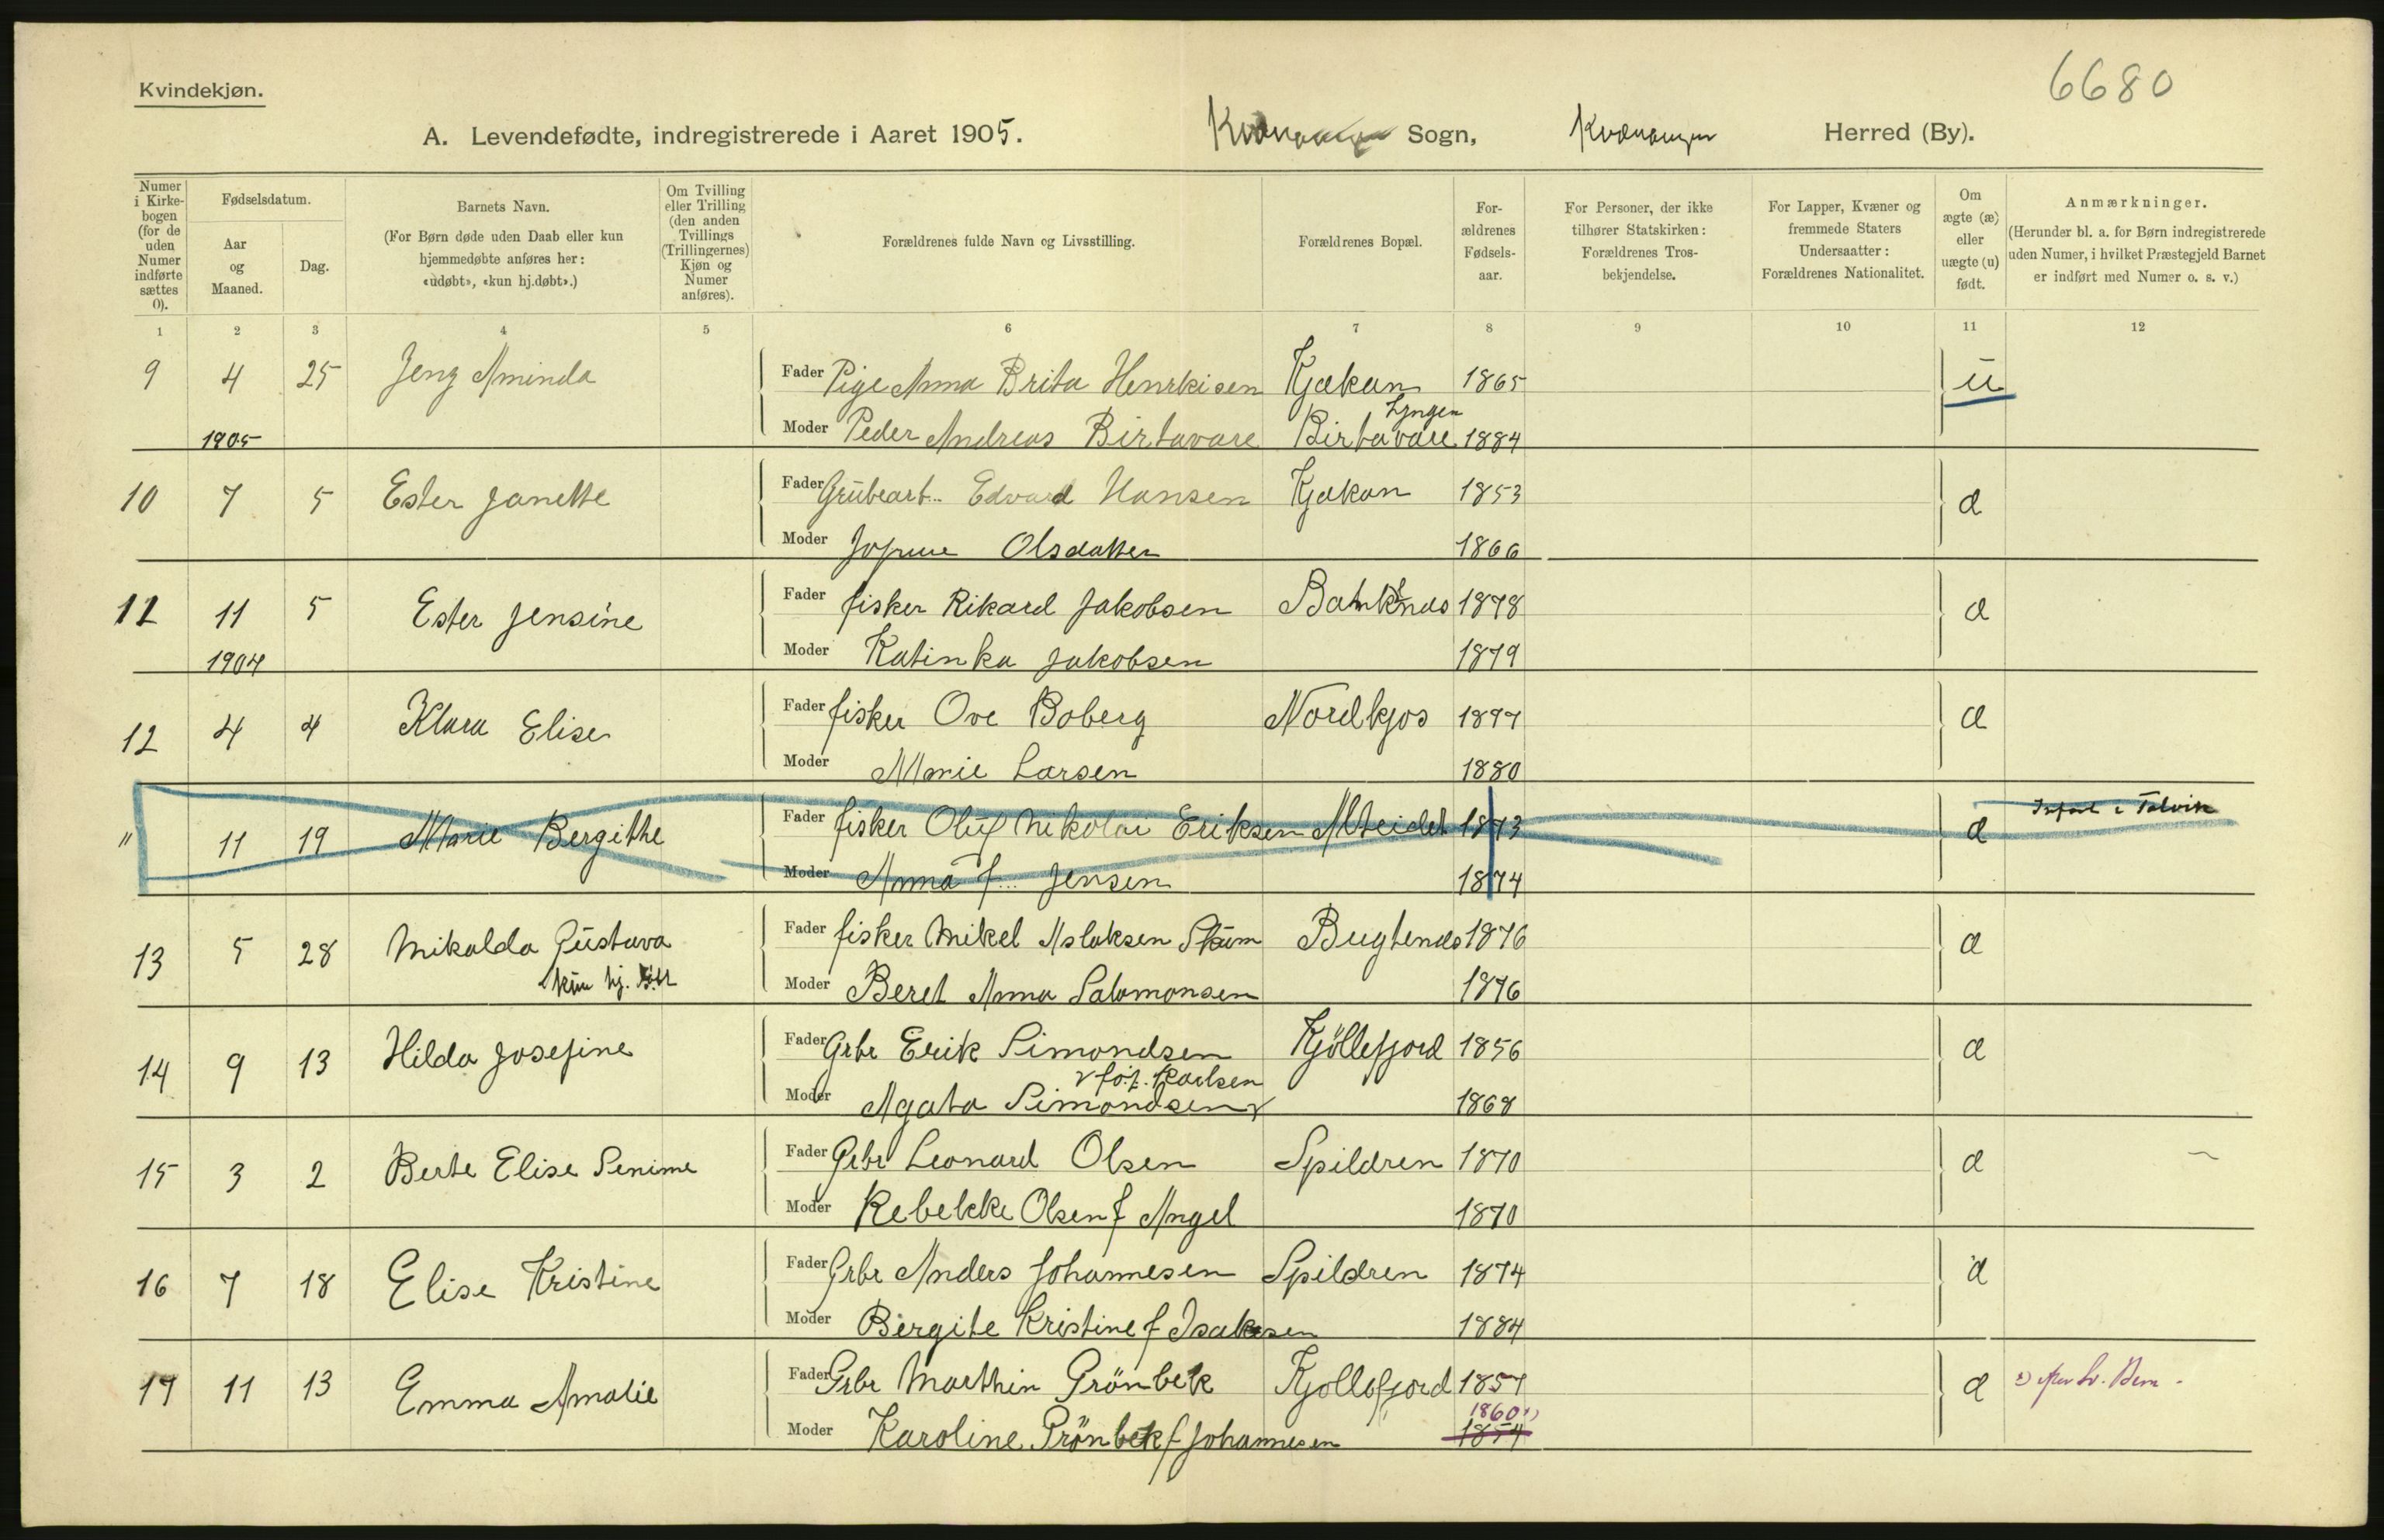 6680
Kvindekjøn.
A. Levendefødte, indregistrerede i Aaret 1905. Kvænangen Sogn, Kvænangen Herred (By).
Numer i Kirkebogen (for de uden Numer indførte sættes 0).
Fødselsdatum.
Aar og Maaned.
Dag.
Barnets Navn.
(For Børn døde uden Daab eller kun hjemmedøbte anføres her: «udøbt», «kun hj.døbt».)
Om Tvilling eller Trilling (den anden Tvillings (Trillingernes) Kjøn og Numer anføres).
Forældrenes fulde Navn og Livsstilling.
Forældrenes Bopæl.
Forældrenes Fødselsaar.
For Personer, der ikke tilhører Statskirken: Forældrenes Trosbekjendelse.
For Lapper, Kvæner og fremmede Staters Undersaatter: Forældrenes Nationalitet.
Om ægte (æ) eller uægte (u) født.
Anmærkninger.
(Herunder bl. a. for Børn indregistrerede uden Numer, i hvilket Præstegjeld Barnet er indført med Numer o. s. v.)
1 2 3 4 5 6 7 8 9 10 11 12
9 4 25 Jeng Aminda Fader Pige Anna Brita Henrkisen Kjækan 1865 u
1905 Moder Peder Andreas Birtavare Birtavare Lyngen 1884
10 7 5 Ester Janette Fader Grubearb.. Edvard Hansen Kjækan 1853 æ
Moder Olsdatter 1866
11 11 5 Ester Jensine Fader fisker Rikard Jakobsen 1878 æ
1904 Moder Katinka Jakobsen 1879
12 4 4 Klara Elise Fader fisker Ove Boberg Nordkjos 1877 æ
Moder Marie Larsen 1880
" 11 19 Marie Bergithe Fader fisker Oluf Nikolai Eriksen Alteidet 1873 æ Indført i Talvik
Moder Anna f... Jensen 1874
13 5 28 Mikalda Gustava Fader fisker Mikel Aslaksen Skum Bugtenæs 1876 æ
kun hj. Moder Beret Anna Salamonsen 1876
14 9 13 Hilda Josefine Fader Grbr Erik Simondsen Kjöllefjord 1856 æ
v föd. Karlsen
Moder Agata Simondsen v 1868
15 3 2 Berte Elise Senime Fader Grbr Leonard Olsen Spildren 1870 æ
Moder Rebekke Olsen f Angel 1870
16 7 18 Elise Kristine Fader Grbr Anders Johannesen Spildren 1874 æ
Moder Birgite Kristine f Isaksen 1884
17 11 13 Emma Amalie Fader Grbr Marthin Grönbek Kjöllefjord 1857 æ
1860 1)
Moder Karoline Grönbek f Johannesen 1854